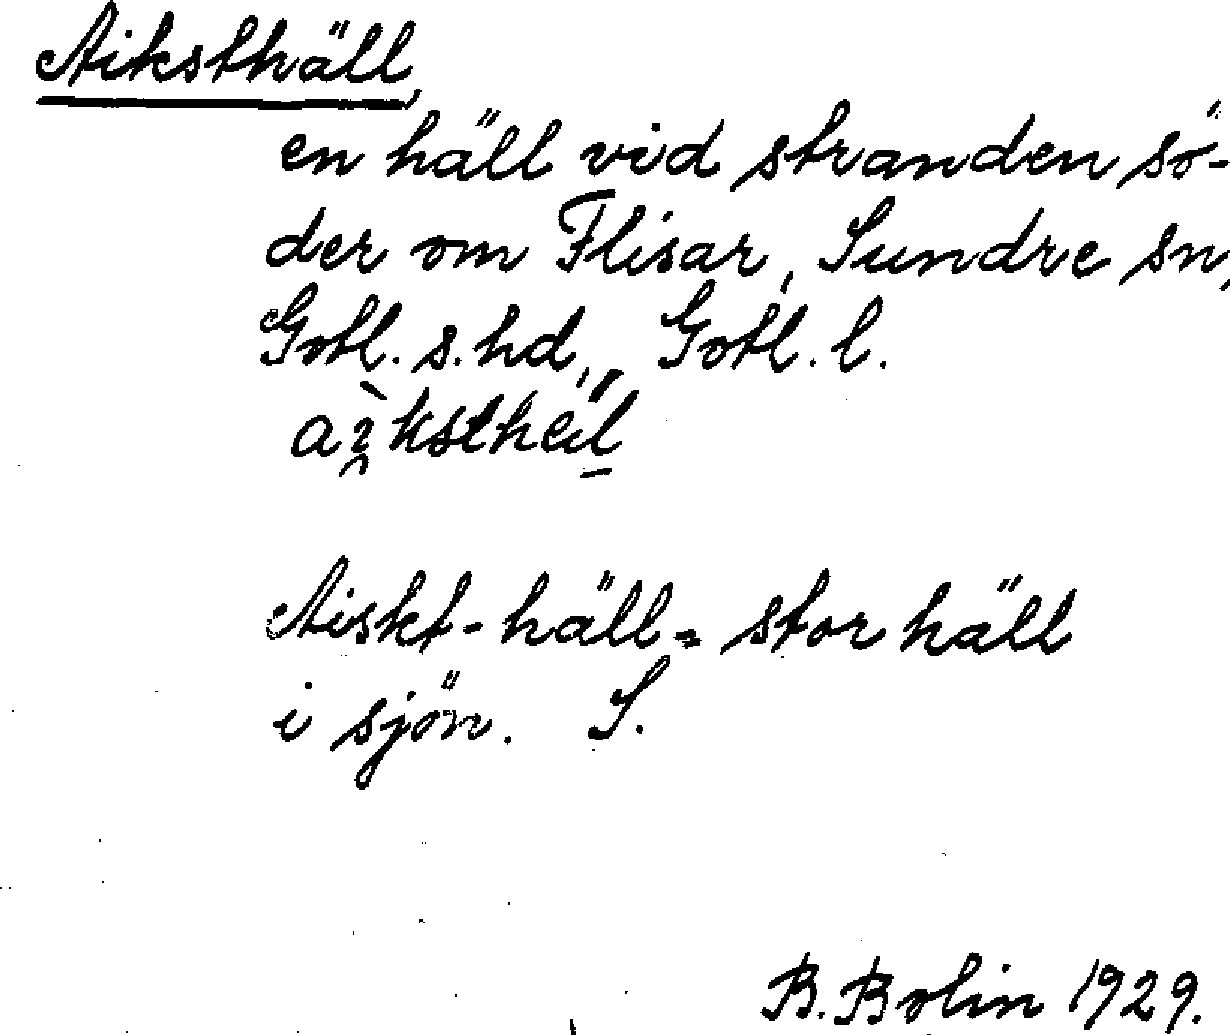 Aiksthäll,
en häll vid stranden sö-
der om Flisar, Sundre sn,
Gotl. s. hd., Gotl. l.
Aiskt-häll = stor häll
i sjön. S.
B. Bolin 1929.